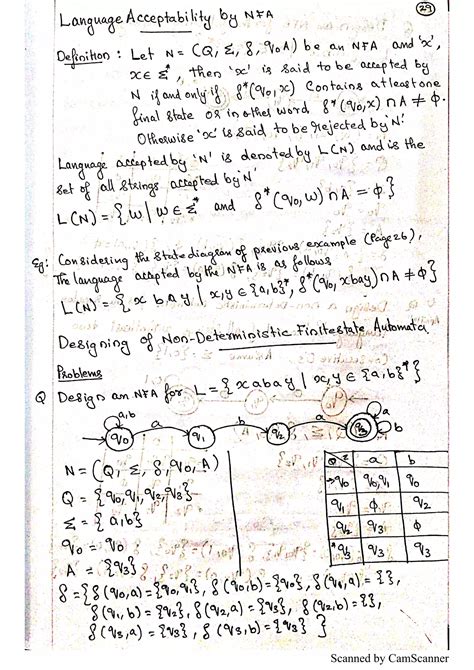 29
Language Acceptability by NFA
Definition : Let N = (Q, Σ, δ, q0, A) be an NFA and 'x',
x ∈ Σ*, then 'x' is said to be accepted by
N if and only if δ*(q0, x) contains atleast one
final state or in other word δ*(q0, x) ∩ A ≠ Φ.
Otherwise 'x' is said to be rejected by 'N'
Language accepted by 'N' is denoted by L(N) and is the
set of all strings accepted by 'N'
L(N) = {w | w ∈ Σ* and δ*(q0, w) ∩ A = Φ}
Eg: Considering the state diagram of previous example (Page 26),
The language accepted by the NFA is as follows
L(N) = { x b a y | x, y ∈ {a,b}*, δ*(q0, xbay) ∩ A ≠ Φ}
Designing of Non-Deterministic Finite state Automata
Problems
Q Design an NFA for L = { x a b a y | x, y ∈ {a,b}*}
a,b a b a a b
q0 q1 q2 q3
N = (Q, Σ, δ, q0, A)
Q = {q0, q1, q2, q3}
Σ = {a, b}
q0 = q0
A = {q3}
Q Σ a b
→q0 q0,q1 q0
q1 Φ q2
q2 q3 Φ
*q3 q3 q3
δ = {δ(q0, a) = {q0, q1}, δ(q0, b) = {q0}, δ(q1, a) = {},
δ(q1, b) = {q2}, δ(q2, a) = {q3}, δ(q2, b) = {},
δ(q3, a) = {q3}, δ(q3, b) = {q3} }
Scanned by CamScanner